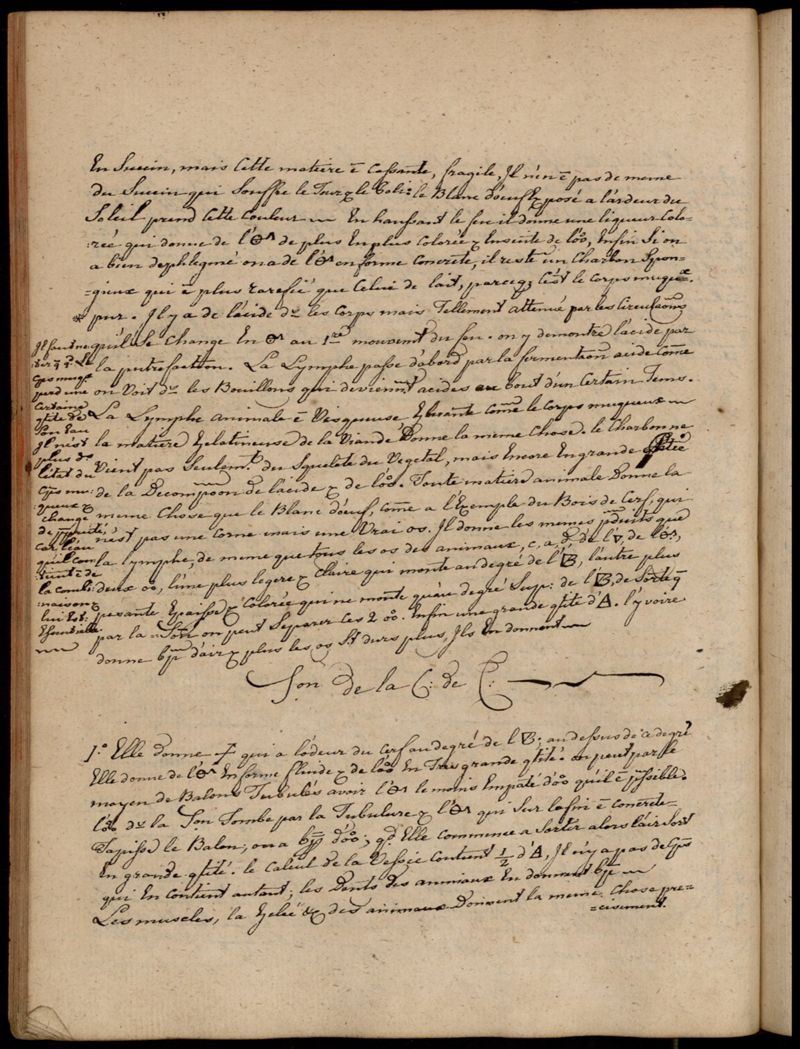 En Succin, mais Cette matiere ē Cassante, fragile, Il n'en ē pas de meme
du Succin qui Souffre le le Blanc d'œuf Exposé a l'ardeur du
Soleil prend Cette Couleur ~ En haussant le feu il donne une liqueur Colo=
rée qui donne de l'🜹 de plus En plus Colorée & Ensuite de l'oo, Enfin Si on
a bien dephlegmé on a de l'🜹 en forme Concrete, il reste un Charbon Spon=
=gieux qui ē plus rarefié que Celui de lait, parceq; C'est le Corps muqūx
pur. Il y a de l'acide ds les Corps mais Tellement attenué par les Circulāōns
* qu'il Se Change En 🜹 au 1er mouvent du feu. on y demontre l'acide par
la putrefaction. La Lymphe passe d'abord par la fermentīōn acide Cōme
on Voit ds les Bouillons qui deviennt acides au bout d'un Certain Tems.
La Lymphe animale ē Visqueuse Cōme le Corps muqueux ~
la matiere Gelatineuse de la Viande Donne la meme Chose. le Charbon ne
Vient pas Seulemt. du Squelete du Vegetal, mais Encore En grande qtité
de la Decompōōn de l'acide & de l'oo. Toute matiere animale Donne la
meme Chose que le Blanc d'œuf, Cōme a l'Exemple du Bois de Cerf, qui
n'est pas une Corne mais une Vrai os. Il donne les memes pduits que
la lymphe, de meme que tous les os des animaux, c, a, d, de l'🜄, de l'🜹,
deux oo, l'une plus legere & Claire qui monte au degré de l'🜄B, l'autre plus
pesante Epaisse & Colorée qui ne monte qu'au degré Sup: de l'🜄B, de Sorte q̄
par la on peut Separer Ces 2 oo. Enfin une grande qtité d'🜁. l'yvoire
donne bp d'air & plus les os St durs plus, Ils En donnent ~
Il faut ne
Corps muqx
perd une
Certaine
qtité de
Son Eau
Il n'est
plus de
l'état du
Cps mu:
queux &
Change
de ppriété,
Car l'eau
qu'il Con
tient ē de
la Combi:
:naison &
lui Est
Essentielle
~
de la C: de C:
1.° Elle donne qui a l'odeur du Cerf au degré de l'🜄B. au dessus de Ce degré
Elle donne de l'🜹 En forme fluide & de l'oo En Tres grande qtité. on peut par le
moyen de Balons Tubulés avoir l'🜹 le moins Empaté d'oo qu'il ē pssible.
l'oo ds la Tombe par la Tubulure & l'🜹 qui Sur la fin ē Concrete
Tapisse le Balon, on a bp d'oo; qd Elle Commence a Sortir alors l'air Sort
En grande qtité. le Calcul de la Vessie Contient ½ d'🜁, Il n'y a pas de Cps
qui En Contient autant; les Dents des animaux En donnent bp ~
Les muscles, la Gelée &c des animaux Donnent la meme Chose pre=
=cisement.